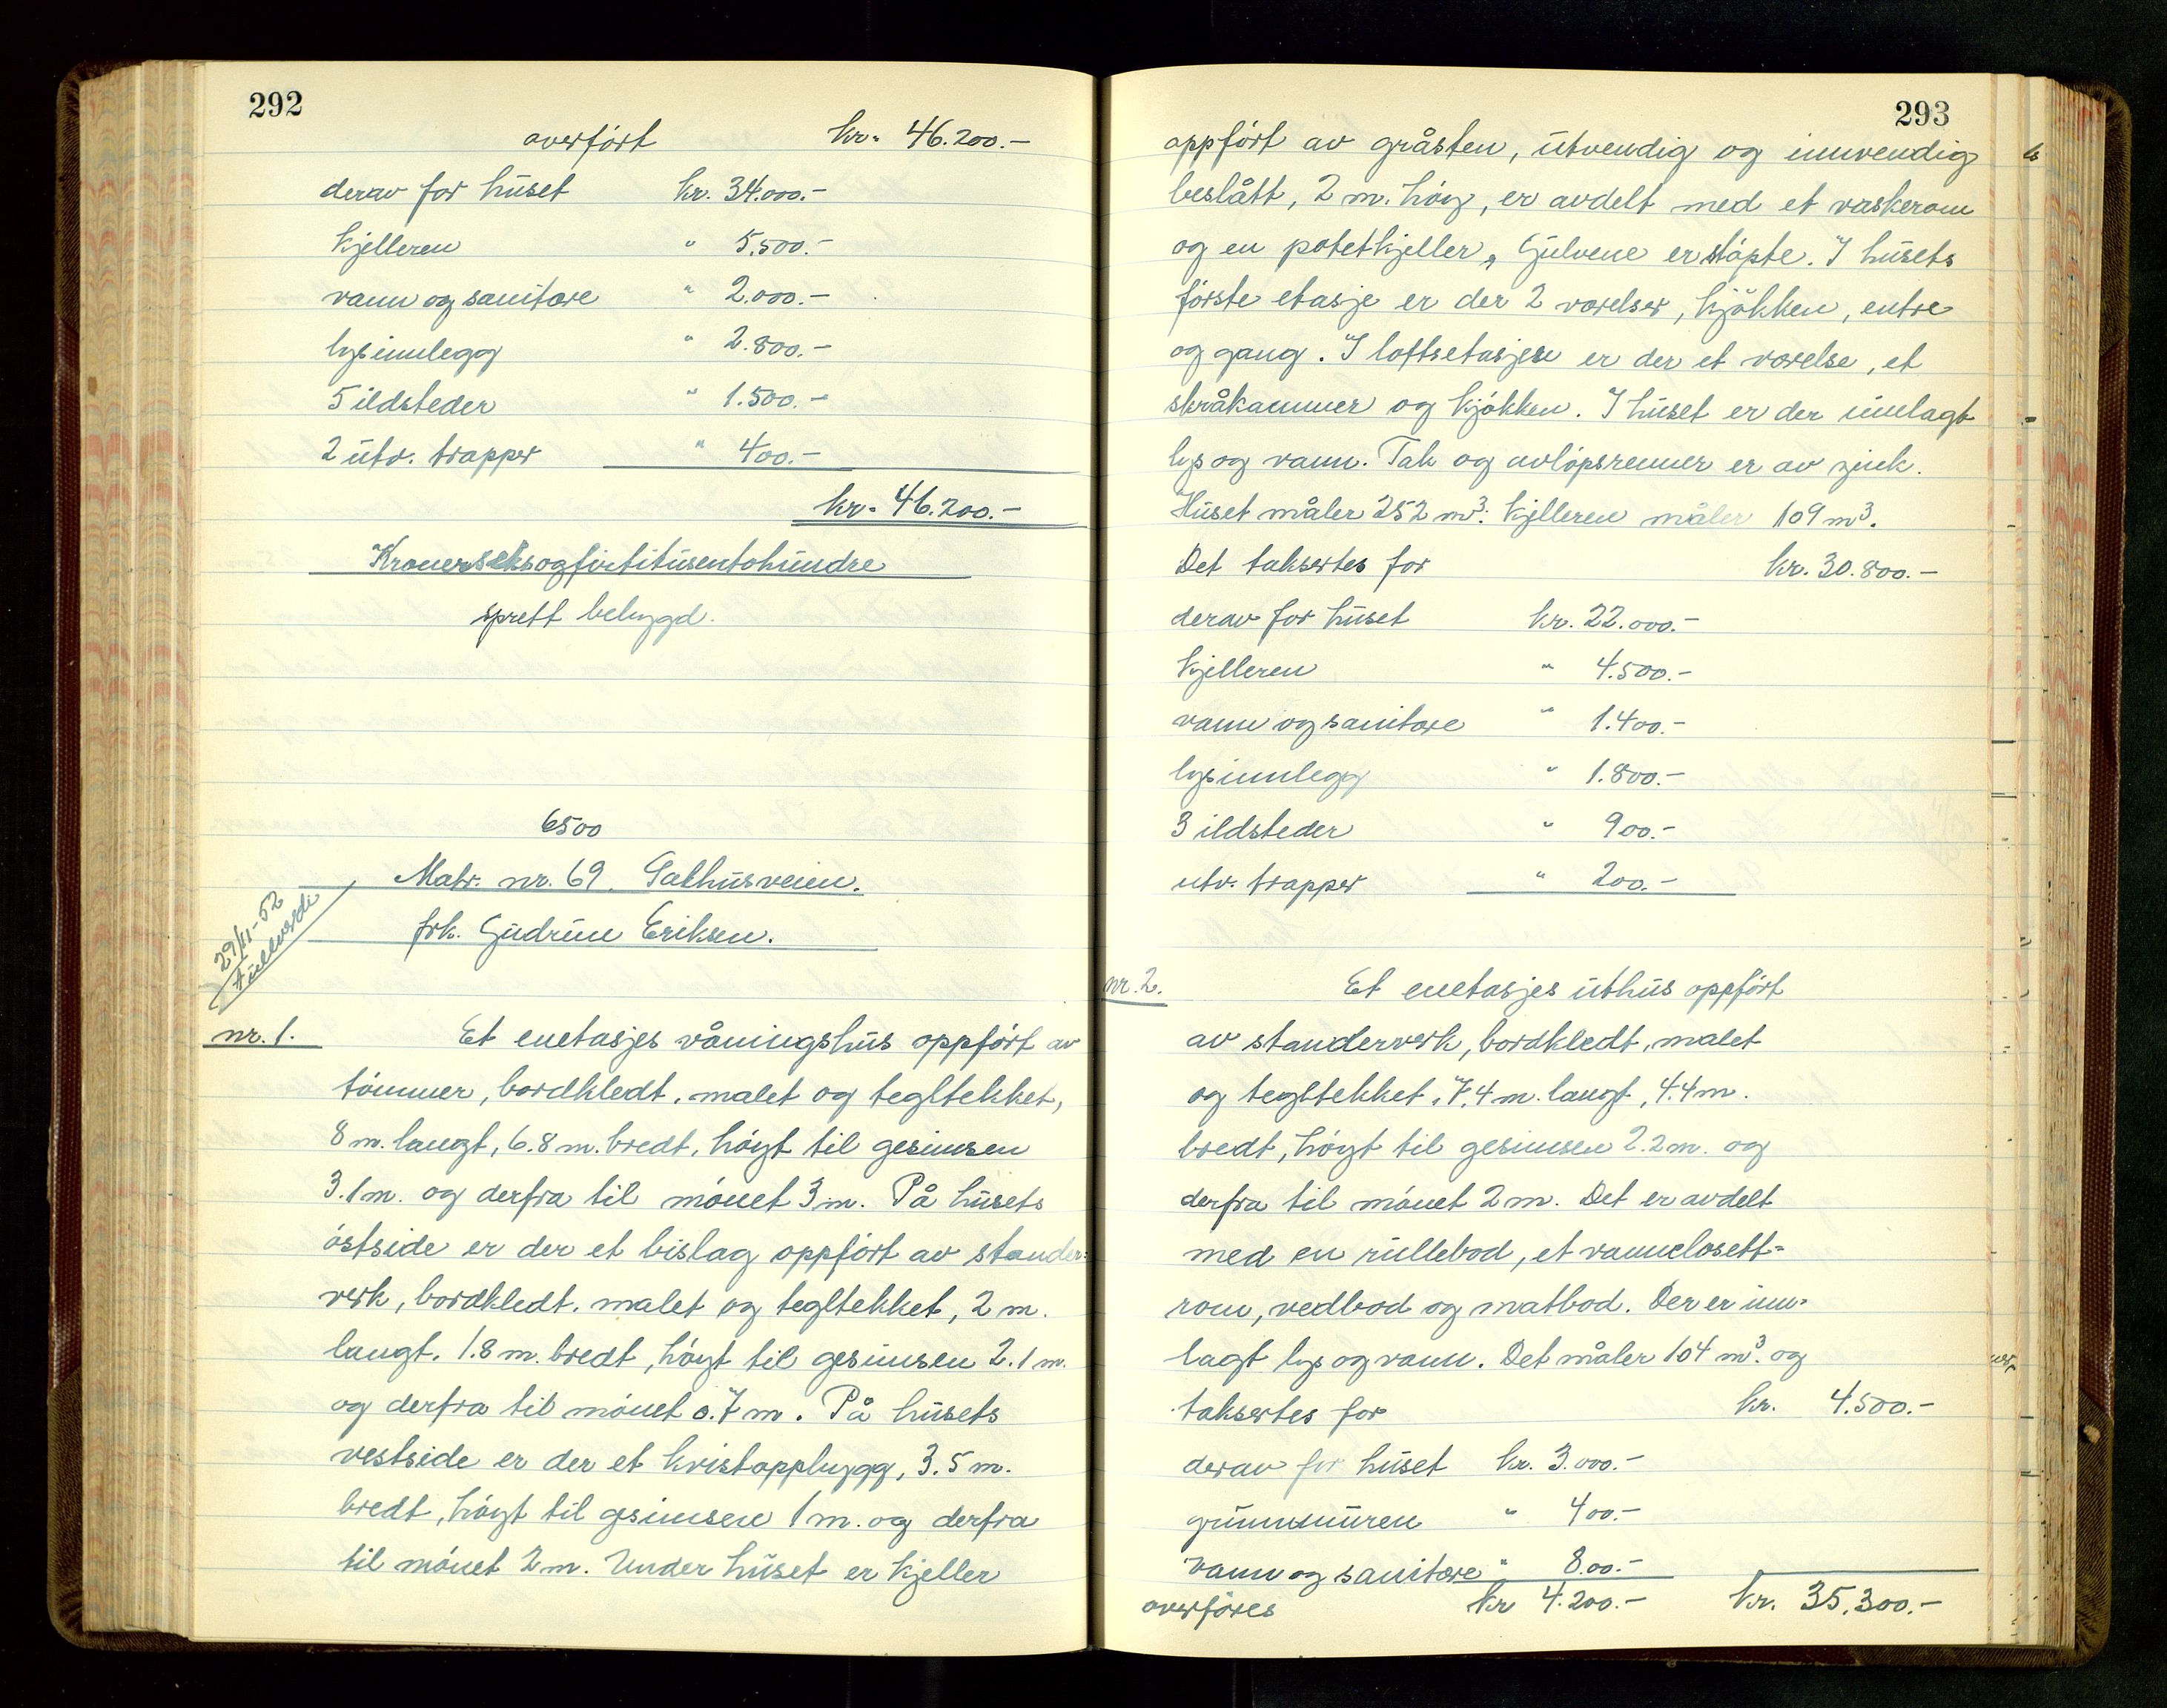 292
overført kr. 46.200.-
derav for huset kr. 34.000.-
kjelleren " 5.500.-
vann og sanitære " 2.000.-
lysinnlegg " 2.800.-
5 ildsteder " 1.500.-
2 utv. trapper " 400.-
kr. 46.200.-
Kronerseksogførtitusentohundre
sprett bebygd.
6500
Matr. nr. 69. Galhusveien.
frk. Gudrun Eriksen.
29/11-52
Fullverdi
nr. 1. Et enetasjes våningshus oppført av
tømmer, bordkledt, malet og tegltekket,
8 m. langt, 6.8 m. bredt, høyt til gesimsen
3.1 m. og derfra til mønet 3 m. På husets
østside er der et bislag oppført av stander=
verk, bordkledt, malet og tegltekket, 2 m.
langt, 1.8 m. bredt, høyt til gesimsen 2.1 m.
og derfra til mønet 0.7 m. På husets
vestside er der et kvistoppbygg, 3.5 m.
bredt, høyt til gesimsen 1 m. og derfra
til mønet 2 m. Under huset er kjeller
293
oppført av gråsten, utvendig og innvendig
beslått, 2 m. høy, er avdelt med et vaskerom
og en potetkjeller, Gulvene er støpte. I husets
første etasje er der 2 værelser, kjøkken, entre
og gang. I loftsetasjen er der et værelse, et
skråkammer og kjøkken. I huset er der innlagt
lys og vann. Tak og avløpsrenner er av zink.
Huset måler 252 m³. Kjelleren måler 109 m³.
Det taksertes for kr. 30.800.-
derav for huset kr. 22.000.-
kjelleren " 4.500.-
vann og sanitære " 1.400.-
lysinnlegg " 1.800.-
3 ildsteder " 900.-
utv. trapper " 200.-
nr. 2. Et enetasjes uthus oppført
av standerverk, bordkledt, malet
og tegltekket, 7.4 m. langt, 4.4 m.
bredt, høyt til gesimsen 2.2 m. og
derfra til mønet 2 m. Det er avdelt
med en rullebod, et vannclosett=
rom, vedbod og matbod. Der er inn=
lagt lys og vann. Det måler 104 m³. og
taksertes for kr. 4.500.-
derav for huset kr. 3.000.-
grunnmuren " 400.-
vann og sanitære " 800.-
overføres kr 4.200.- kr. 35.300.-